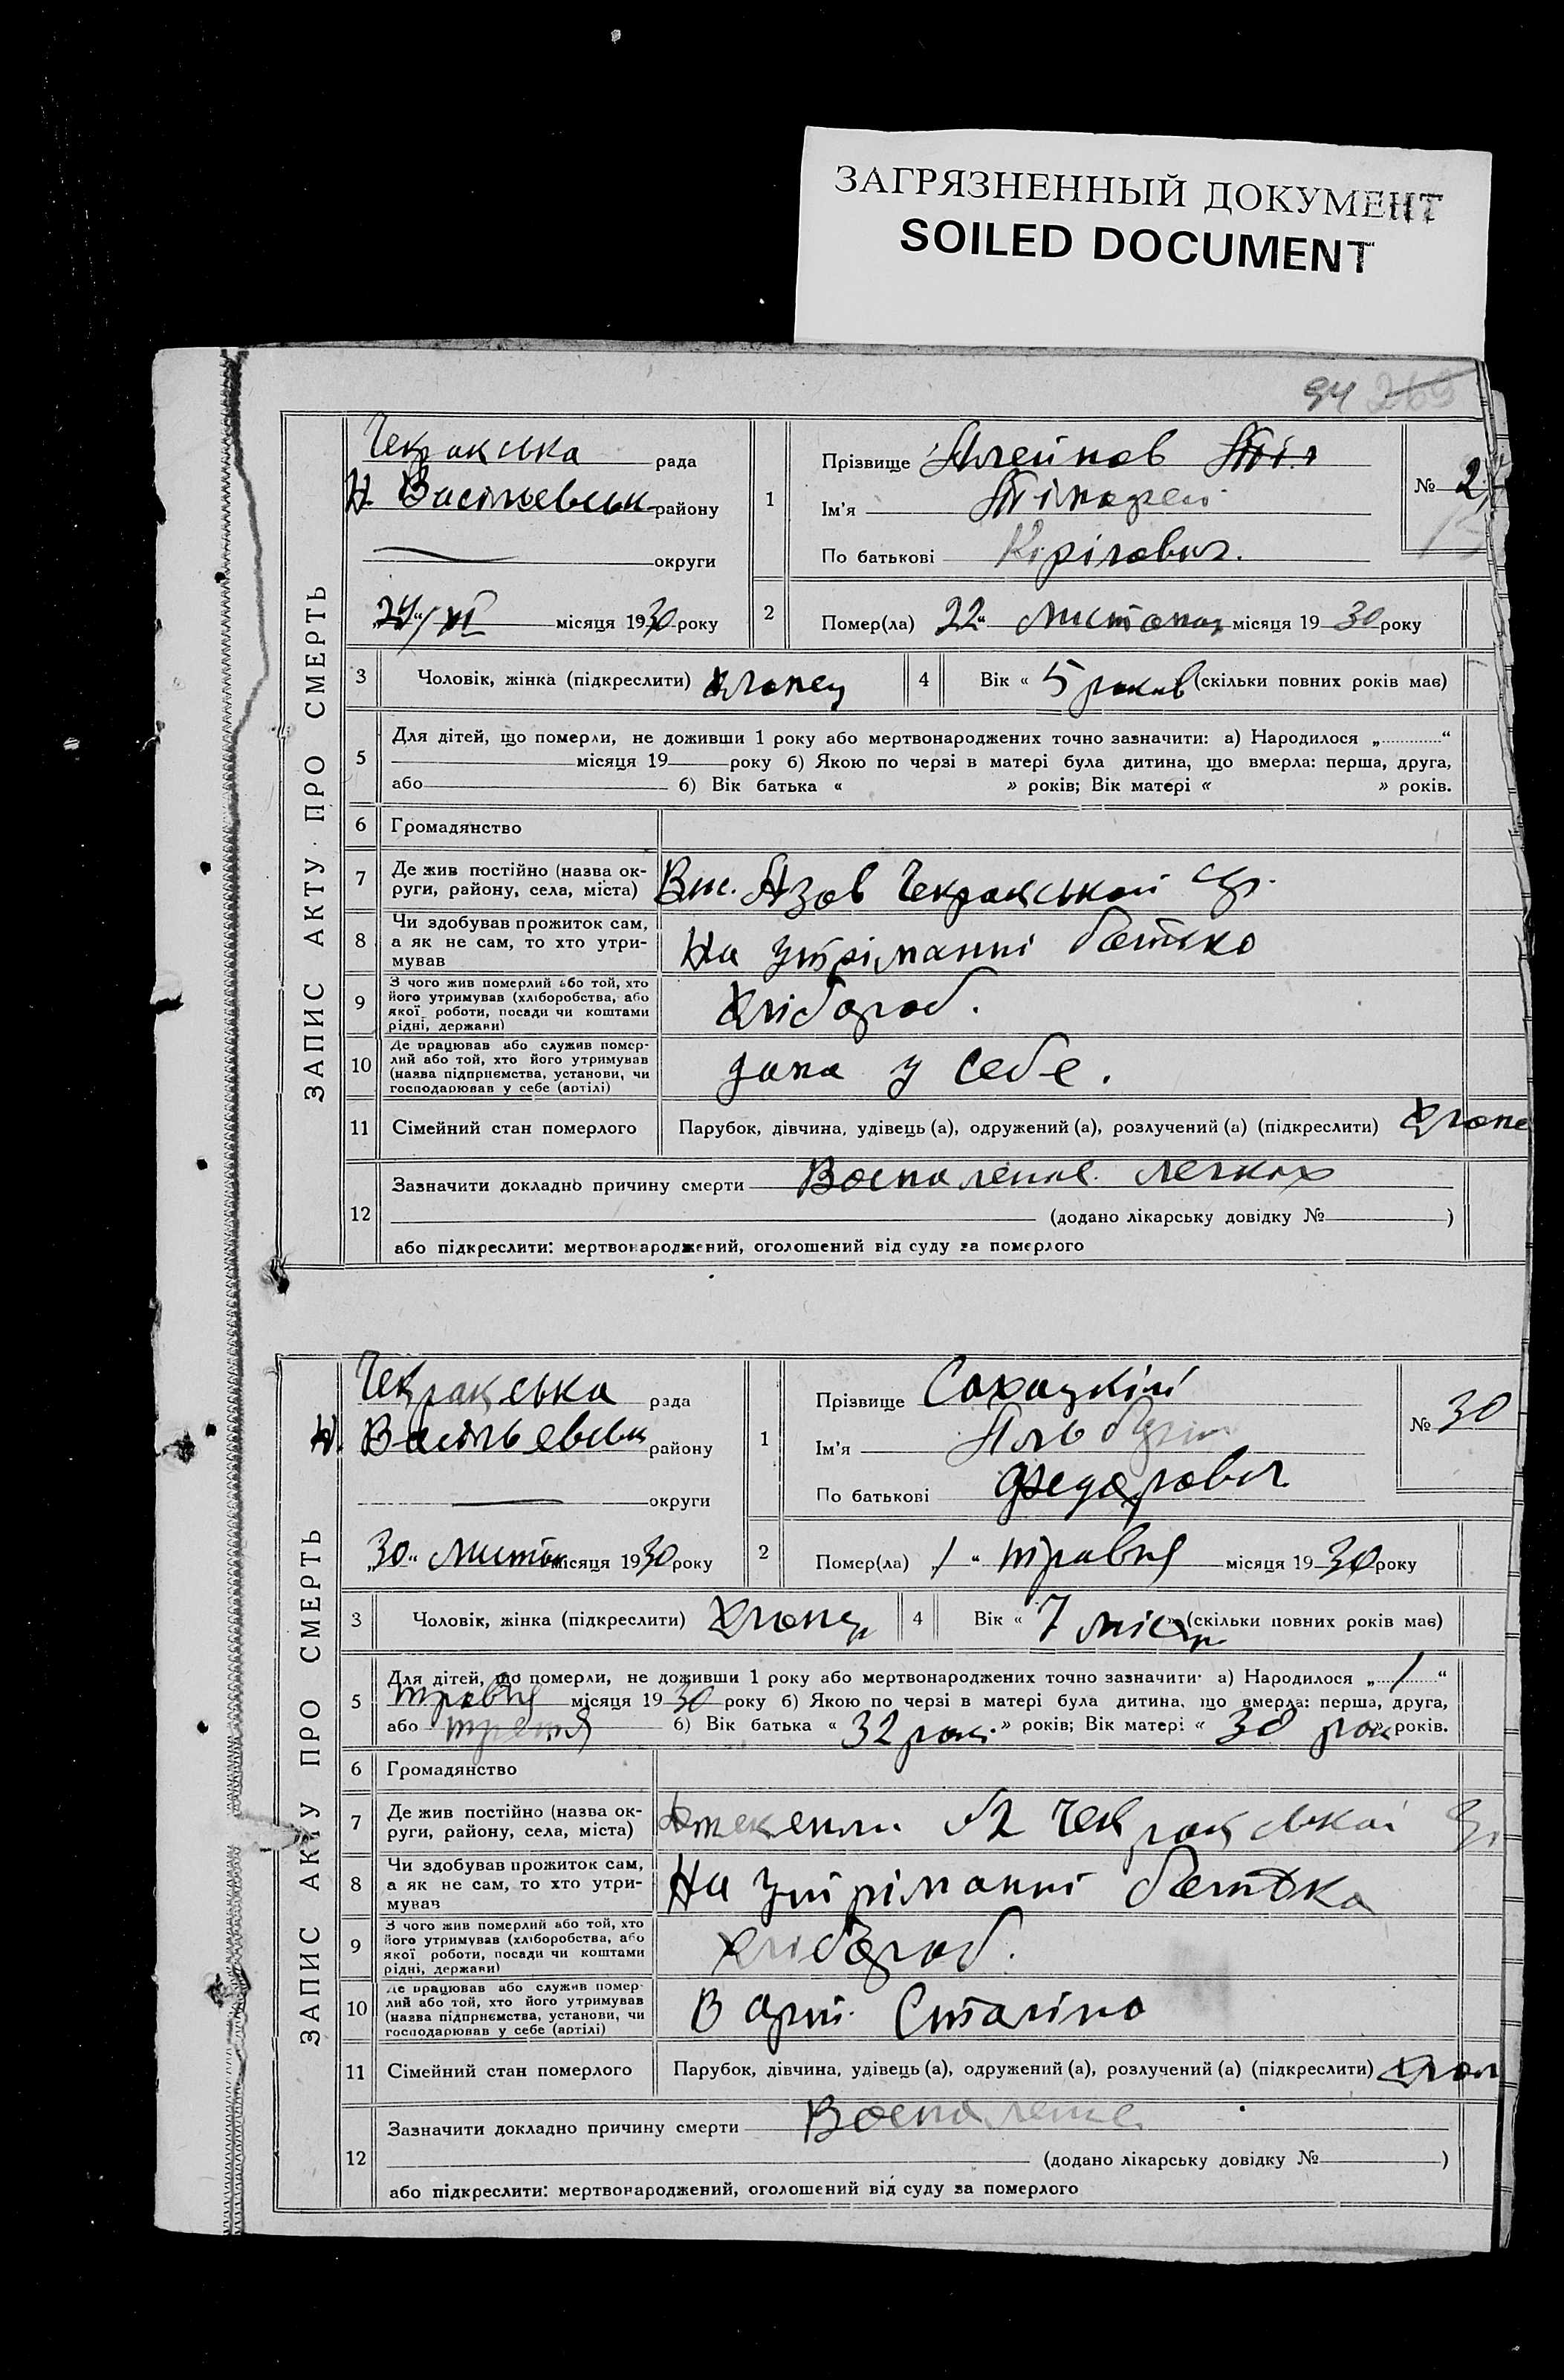 ЗАГРЯЗНЕННЫЙ ДОКУМЕНТ
SOILED DOCUMENT
94 269
ЗАПИС АКТУ ПРО СМЕРТЬ
Чекракська рада
Н. Васільевськ району
округи
24/XI місяця 1930 року
1
Прізвище Алейнов
Ім'я
По батькові Кірілович.
№ 2
2 Помер(ла) 22 „ Листопад місяця 19 30 року
3 Чоловік, жінка (підкреслити) хлопец
4 Вік « 5 роков (скільки повних років має)
5 Для дітей, що померли, не доживши 1 року або мертвонароджених точно зазначити: а) Народилося „ “
місяця 19 року б) Якою по черзі в матері була дитина, що вмерла: перша, друга,
або б) Вік батька « » років; Вік матері « » років.
6 Громадянство
7 Де жив постійно (назва округи, району, села, міста) Вис. Азов Чекракськои с/р.
8 Чи здобував прожиток сам, а як не сам, то хто утримував На утріманні батько
9 З чого жив померлий або той, хто його утримував (хліборобства, або якої роботи, посади чи коштами рідні, держави) хлібороб.
10 Де працював або служив померлий або той, хто його утримував (назва підприємства, установи, чи господарював у себе (артілі) дома у себе.
11 Сімейний стан померлого Парубок, дівчина, удівець (а), одружений (а), розлучений (а) (підкреслити) хлопе
12 Зазначити докладно причину смерти Воспаление легких
(додано лікарську довідку № )
або підкреслити: мертвонароджений, оголошений від суду за померлого
ЗАПИС АКТУ ПРО СМЕРТЬ
Чекракська рада
Н. Васільевськ району
округи
„30„ Листоп місяця 1930 року
1
Прізвище Сохацкій
Ім'я
По батькові Федорович
№ 30
2 Помер(ла) 1 „ травня місяця 19 30 року
3 Чоловік, жінка (підкреслити) хлопец
4 Вік « 7 місяц (скільки повних років має)
5 Для дітей, що померли, не доживши 1 року або мертвонароджених точно зазначити: а) Народилося „ 1 “
травня місяця 19 30 року б) Якою по черзі в матері була дитина, що вмерла: перша, друга,
або третя б) Вік батька « 32 рок. » років; Вік матері « 30 рок » років.
6 Громадянство
7 Де жив постійно (назва округи, району, села, міста) №2 Чекракськои с/р
8 Чи здобував прожиток сам, а як не сам, то хто утримував На утріманні батька
9 З чого жив померлий або той, хто його утримував (хліборобства, або якої роботи, посади чи коштами рідні, держави) хлібороб.
10 Де працював або служив померлий або той, хто його утримував (назва підприємства, установи, чи господарював у себе (артілі) В арт. Сталіно
11 Сімейний стан померлого Парубок, дівчина, удівець (а), одружений (а), розлучений (а) (підкреслити) хлоп
12 Зазначити докладно причину смерти Воспаление
(додано лікарську довідку № )
або підкреслити: мертвонароджений, оголошений від суду за померлого